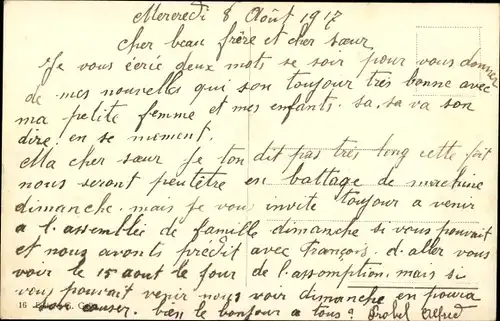 Mercredi 8 Août 1917
Cher beau frère et cher sœur
Je vous écrie deux mots se soir pour vous donner
de mes nouvelles qui son toujour très bonne avec
ma petite femme et mes enfants. sa. sa va son
dire. en se moment.
Ma cher sœur je ton dit pas très long cette foit
nous seront peutêtre en battage de machine
dimanche. mais je vous invite toujour a venir
a l'assemblée de famille dimanche si vous pouvait
et nous avonts prédit avec François. d. aller vous
voir le 15 aout le jour de l'assomption. mais si
vous pouvait venir nous voir dimanche en poura
causer. bien le bonjour a tous. Alfred
16